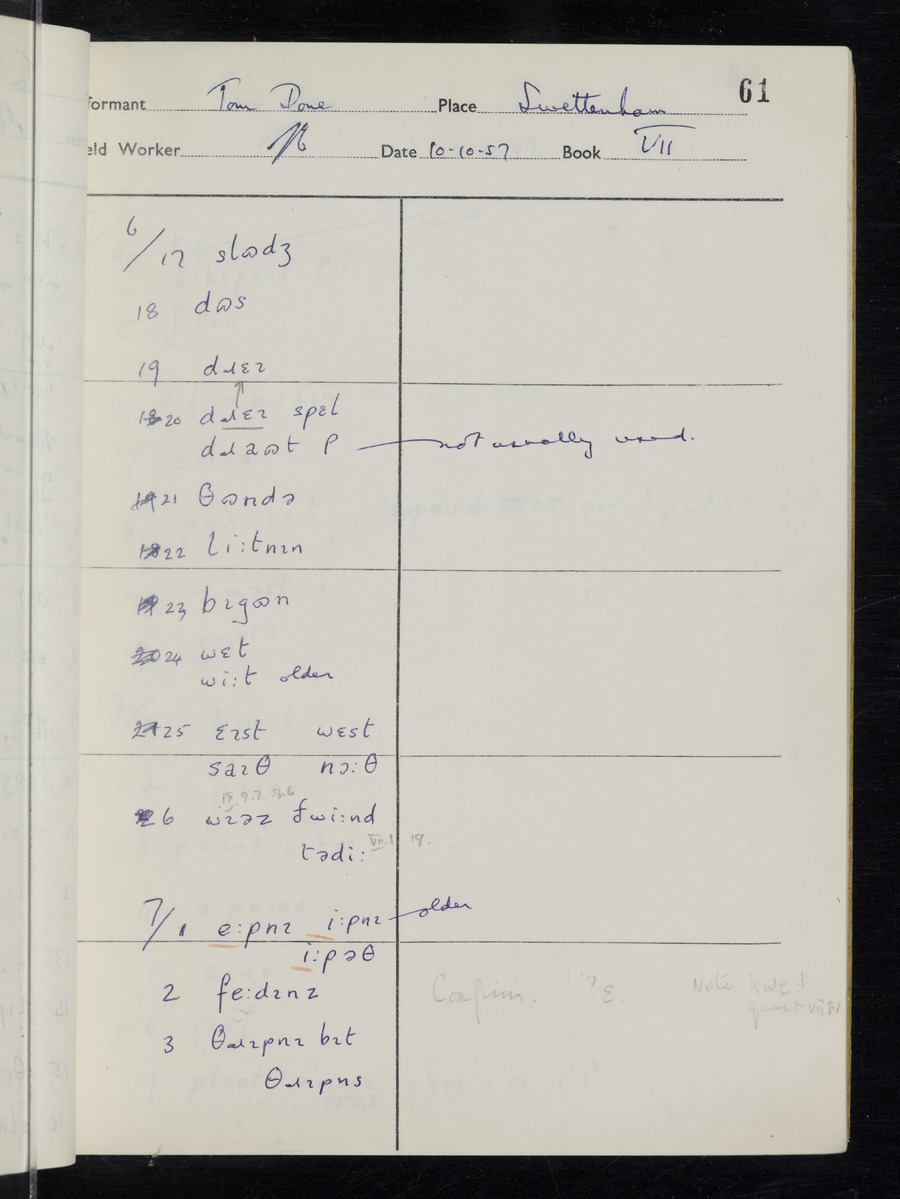 61
formant Tom Done Place Swettenham
eld Worker Date 10-10-57 Book VII
6/17 slɷdʒ
18 dɷs
19 dɹɛɪ
20 dɹɛɪ spɛl
dɹaɷt P — not usually used.
21 θɷndə
22 li:tnɪn
23 bɪgɷn
24 wɛt
wi:t older
25 ɛɪst wɛst
saɪθ nɔ:θ
IX.9.7. sh.6
26 wɪəz ðwi:nd
tədi: VII. 19.
7/1 e:pnɪ i:pnɪ — older
i:pəθ
2 fe:dɪnz Confirm. ?ɛ: Note kwe:t
VII.8.
3 θɹɪpnɪ bɪt
θɹɪpns